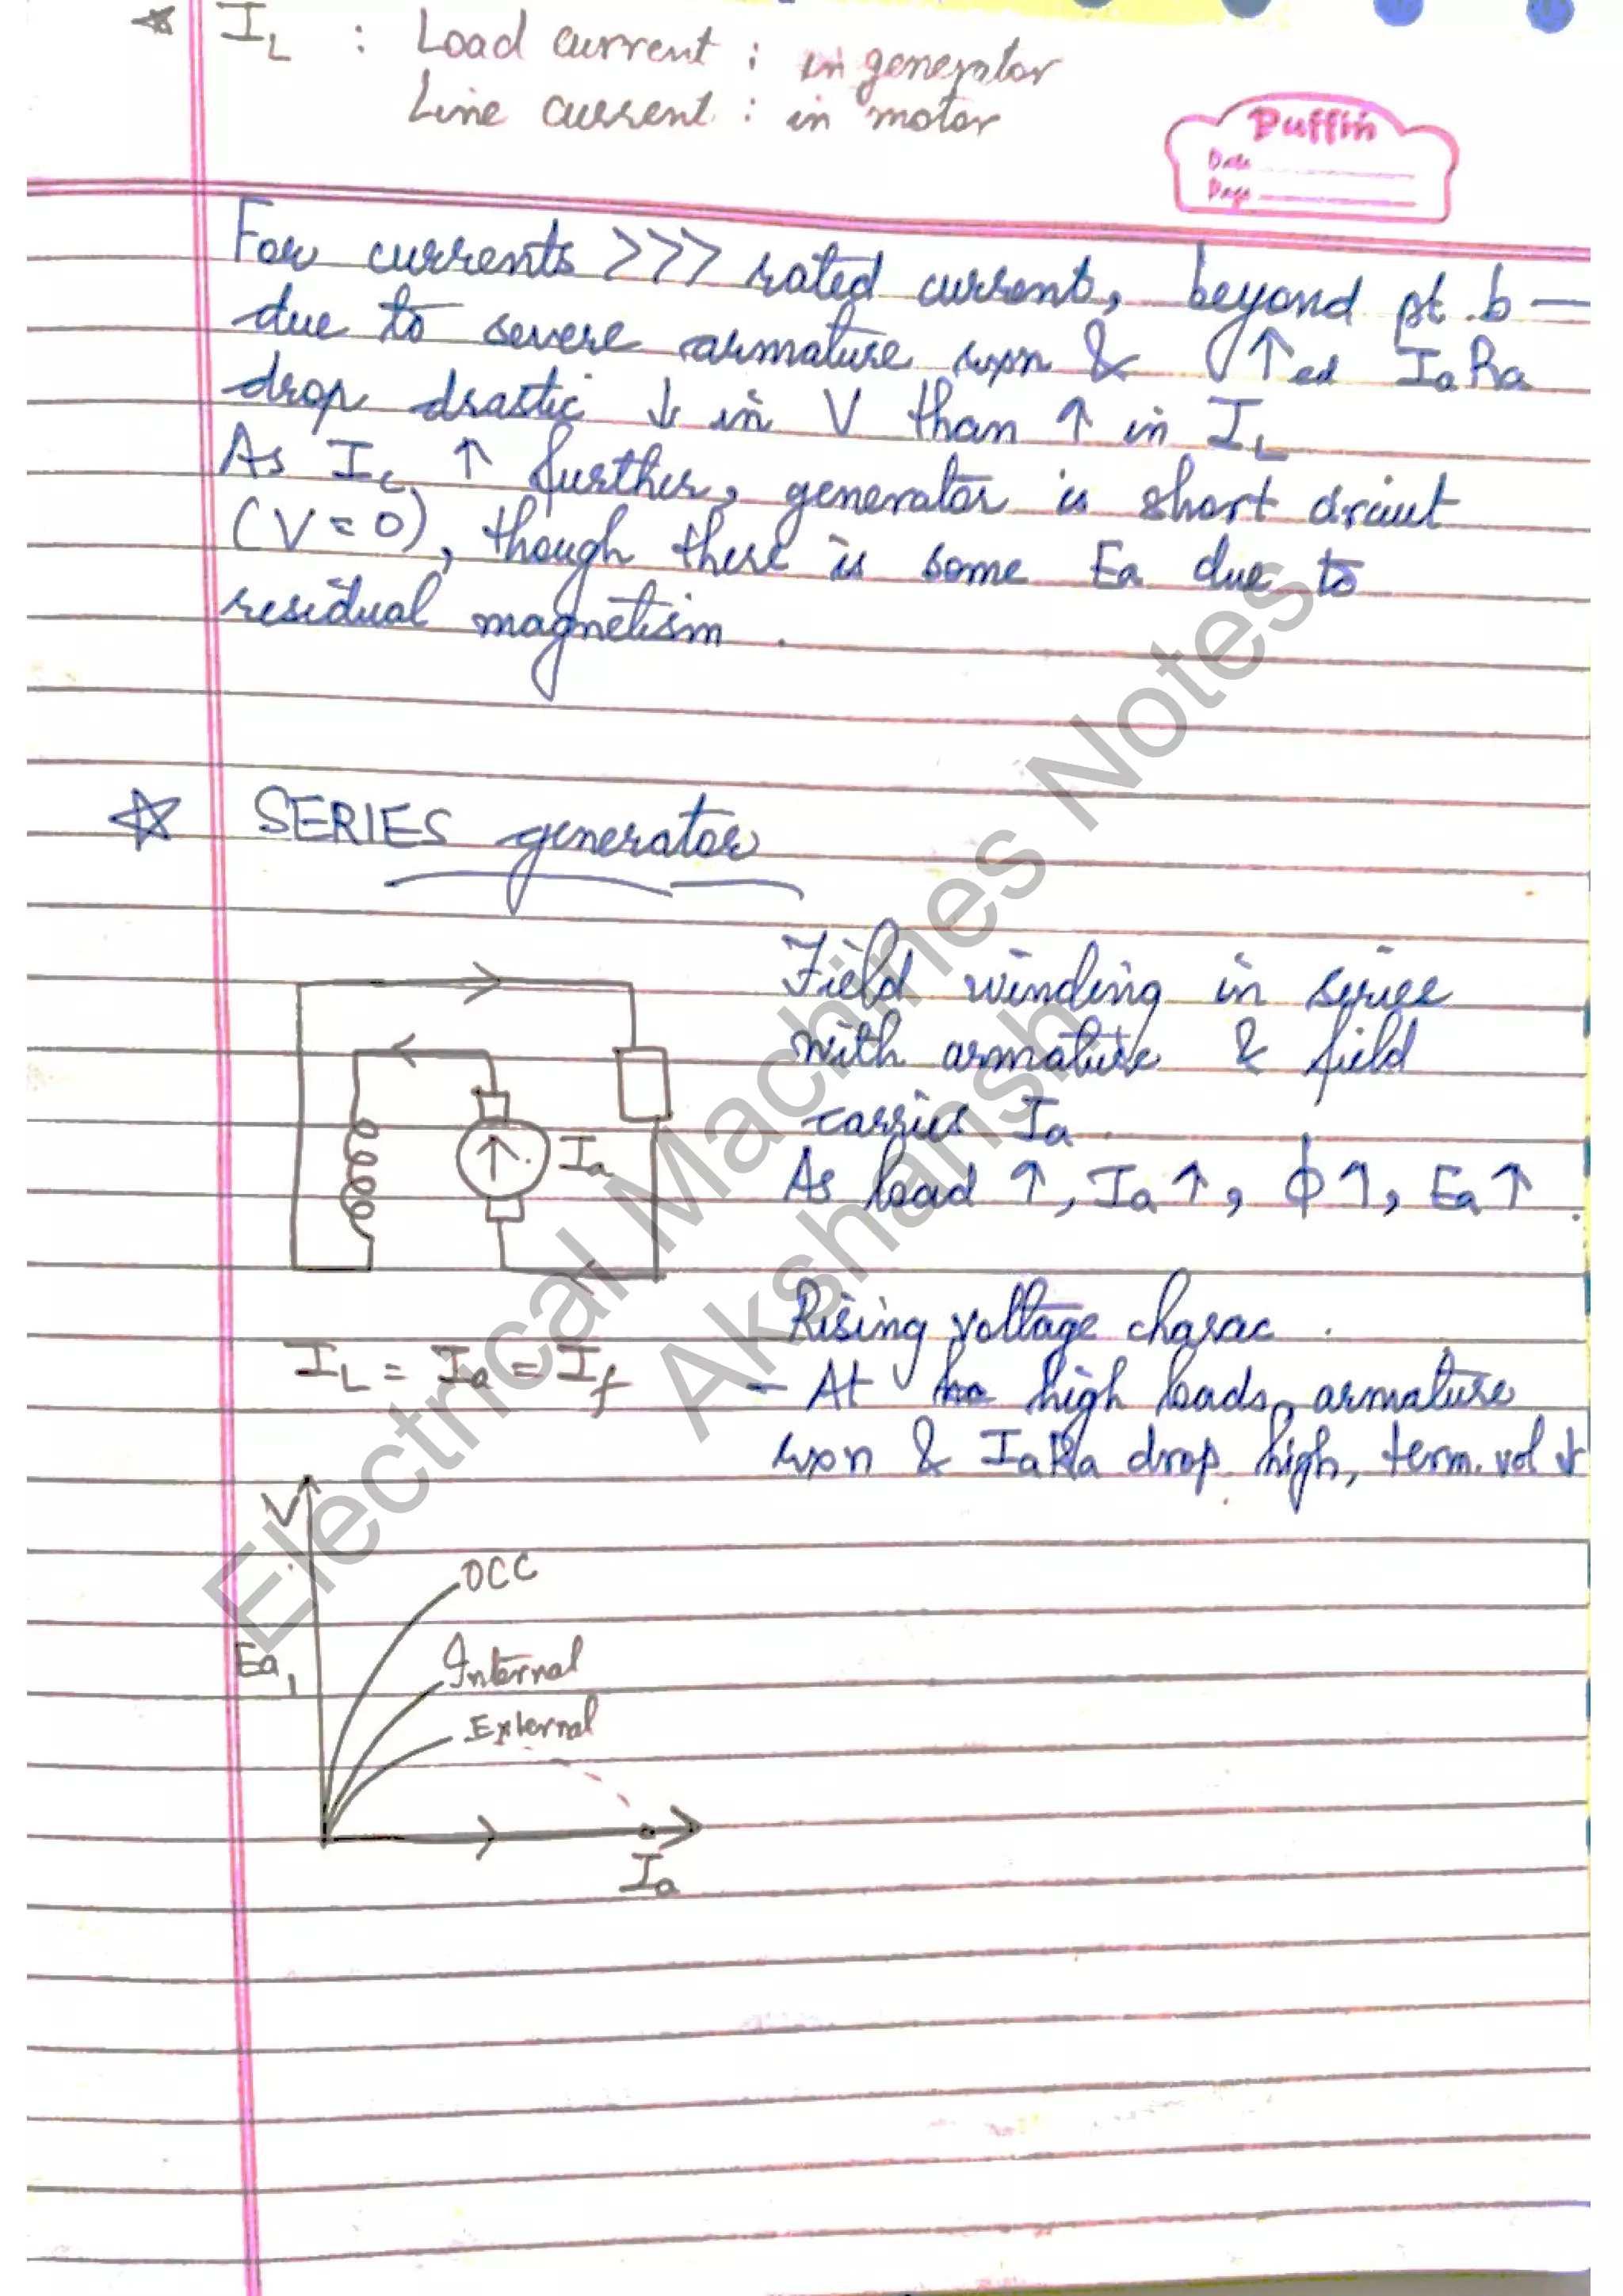 ☆ IL : Load current : in generator
Line current : in motor
Puffin
Date
Page
For currents >>> rated current, beyond pt. b —
due to severe armature rxn & ↑ed IaRa
drop drastic ↓ in V than ↑ in IL
As IL ↑ further, generator is short circuit
(V = 0), though there is some Ea due to
residual magnetism.
☆ SERIES generator
Field winding in series
with armature & field
carries Ia.
As load ↑, Ia ↑, ϕ ↑, Ea ↑.
Ia
Rising voltage charac.
IL = Ia = If
- At high loads, armature
rxn & IaRa drop high, term. vol ↓
V
OCC
Ea,
Internal
External
Ia
Electrical Machines Notes
Akshansh